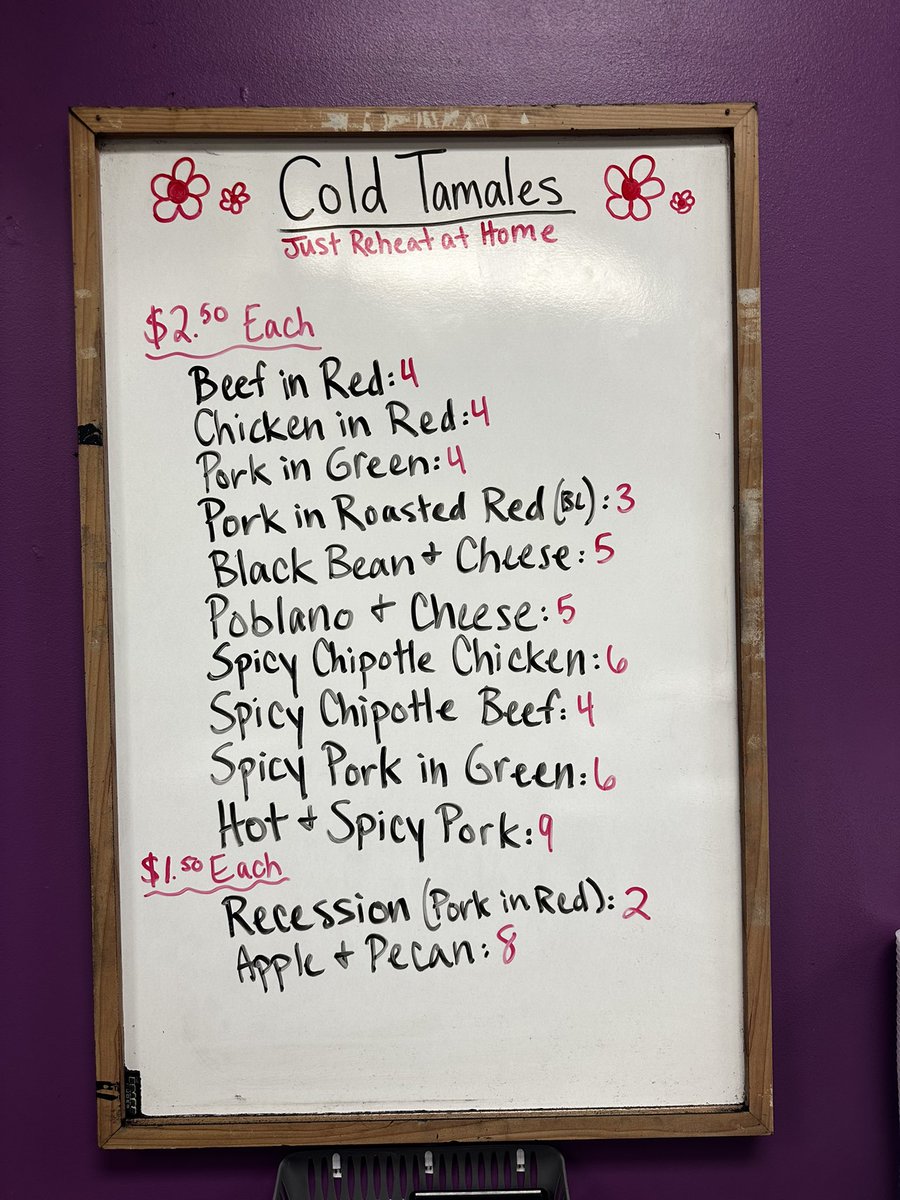 Cold Tamales
Just Reheat at Home
$2.50 Each
Beef in Red: 4
Chicken in Red: 4
Pork in Green: 4
Pork in Roasted Red (BL): 3
Black Bean + Cheese: 5
Poblano + Cheese: 5
Spicy Chipotle Chicken: 6
Spicy Chipotle Beef: 4
Spicy Pork in Green: 6
Hot + Spicy Pork: 9
$1.50 Each
Recession (Pork in Red): 2
Apple + Pecan: 8